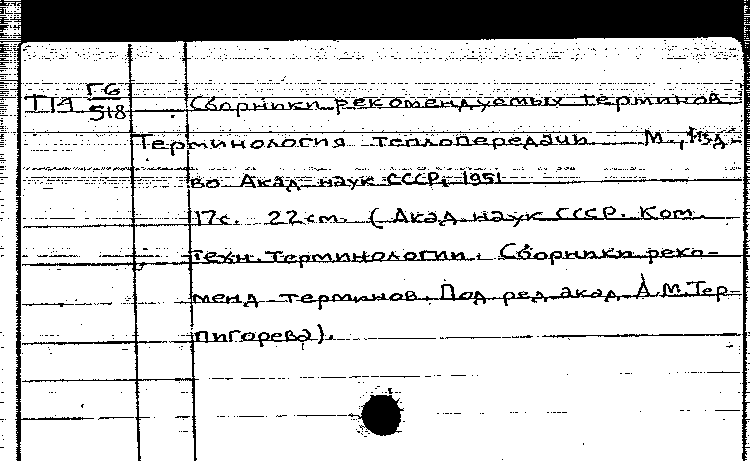 П4 Г6/518 Сборники рекомендуемых терминов
Терминология теплопередачи. М., Изд-
во Акад. наук СССР, 1951
17с. 22см. (Акад. наук СССР. Ком.
техн. терминологии. Сборники реко-
менд. терминов. Под ред. акад. А.М.Тер-
пигорева).